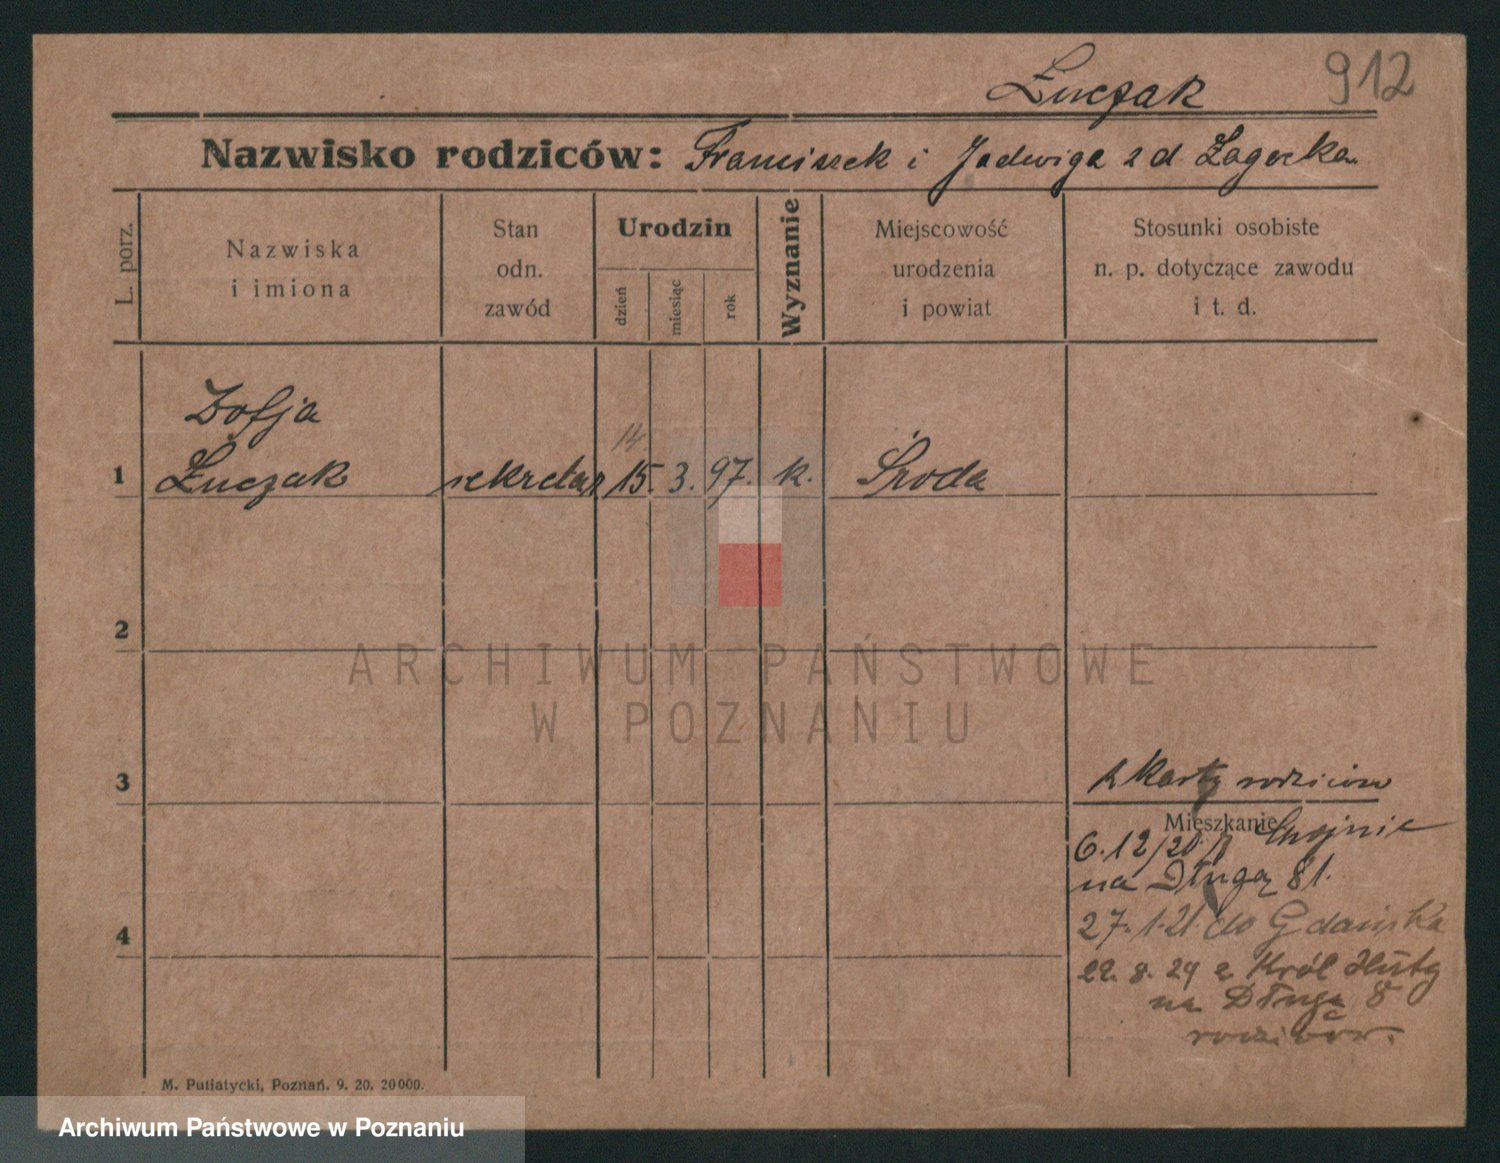 Łuczak 912
Nazwisko rodziców: Franciszek i Jadwiga z d Zagocka
L. porz.
Nazwiska
i imiona
Stan
odn.
zawód
Urodzin
dzień
miesiąc
rok
Wyznanie
Miejscowość
urodzenia
i powiat
Stosunki osobiste
n. p. dotyczące zawodu
i t. d.
Zofja
14
1 Łuczak sekretarz 15. 3. 97. k. Środa
2
ARCHIWUM PAŃSTWOWE
W POZNANIU
3
z karty rodziców
Mieszkanie
6.12/20
na Długą 81.
4
27.1.21 do Gdańska
22. 8. 24 z Król Huty
na Długą 8
rodziców.
M. Putiatycki, Poznań. 9. 20. 20000.
Archiwum Państwowe w Poznaniu